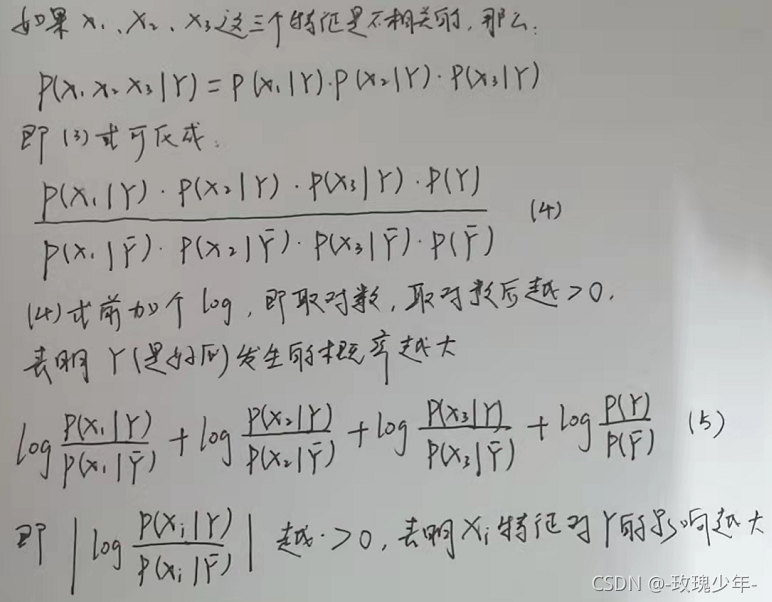 如果 X₁、X₂、X₃这三个特征是不相关的,那么:
P(X₁ X₂ X₃|Y) = P(X₁|Y)·P(X₂|Y)·P(X₃|Y)
即(3)式可化成:
P(X₁|Y)·P(X₂|Y)·P(X₃|Y)·P(Y) / P(X₁|Ȳ)·P(X₂|Ȳ)·P(X₃|Ȳ)·P(Ȳ) (4)
(4)式前加个 log,即取对数,取对数后越>0,
表明 Y(是好瓜)发生的概率越大
log P(X₁|Y)/P(X₁|Ȳ) + log P(X₂|Y)/P(X₂|Ȳ) + log P(X₃|Y)/P(X₃|Ȳ) + log P(Y)/P(Ȳ) (5)
即 |log P(Xᵢ|Y)/P(Xᵢ|Ȳ)| 越>0,表明Xᵢ特征对Y的影响越大
CSDN @-玫瑰少年-